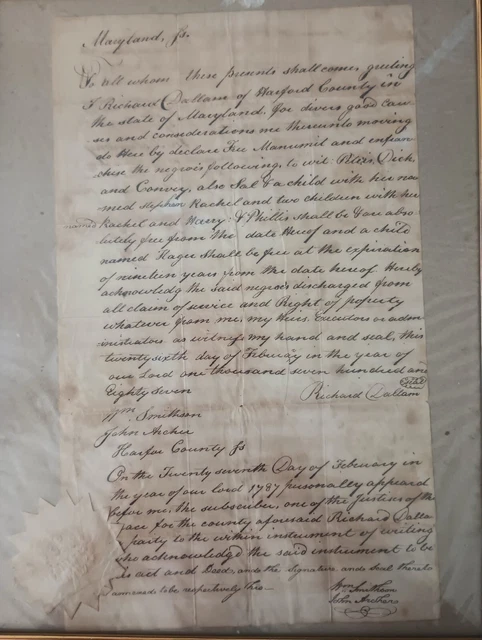 Maryland, fs.
To all whom these presents shall come, greeting
I Richard Dallam of Harford County in
the state of Maryland, for divers good cau-
ses and considerations me thereunto moving
do Here by declare Free Manumit and enfran-
chise the negroes following, to wit Dick,
and Convey, also Sal & a child with her na-
med Stephen Rachel and two children with her
named Rachel and Harry: & Phillis shall be & are abso-
lutely free from the date hereof and a child
named Hager shall be free at the expiration
of nineteen years from the date hereof. Hereby
acknowledg the said negroes discharged from
all claim of service and Right of poperty
whatever from me, my Heirs, Executors or adm-
inistrators. as witness my hand and seal, this
twenty sixth day of Febuary in the year of
our Lord one thousand seven hundred and
Eighty seven
Richard Dallam
Seal
Wm. Smithson
John Archer
Harfor County fs
On the Twenty seventh Day of February in
the year of our lord 1787 personally appeared
before me, the subscriber, one of the Justices of the
peace for the county aforesaid Richard Dalla
party to the within instrument of writing
who acknowledg the said instrument to be
his act and Deed, and the Signature and Seal thereto
annexed to be respectively his—
Wm Smithson
John Archer